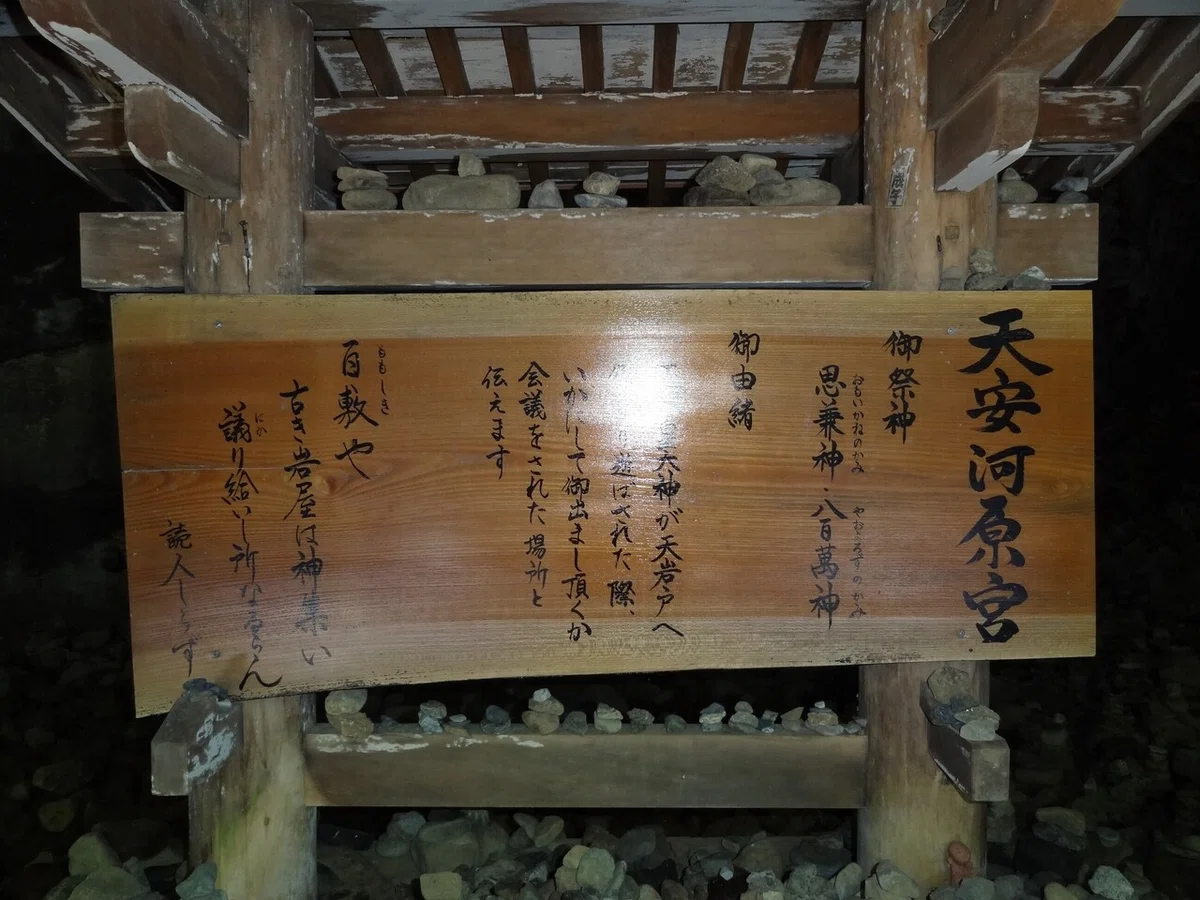 天安河原宮
御祭神
おもいかねのかみ やおよろずのかみ
思兼神・八百萬神
御由緒
大神が天岩戸へ
遊ばされた際、
いかにして御出まし頂くか
会議をされた場所と
伝えます
ももしき
百敷や
古き岩屋は神集い
はか
議り給いし所なるらん
読人しらず